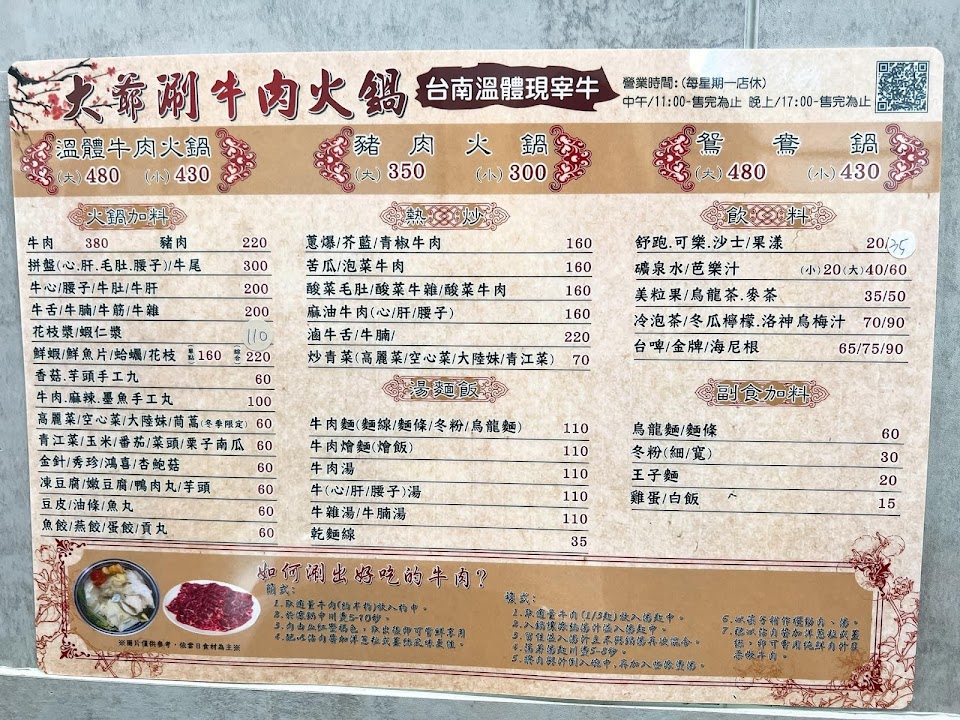 大爺涮牛肉火鍋
台南溫體現宰牛
營業時間:(每星期一店休)
中午/11:00-售完為止 晚上/17:00-售完為止
溫體牛肉火鍋
(大)480 (小)430
豬肉火鍋
(大)350 (小)300
鴛鴦鍋
(大)480 (小)430
火鍋加料
牛肉 380 豬肉 220
拼盤(心.肝.毛肚.腰子)/牛尾 300
牛心/腰子/牛肚/牛肝 200
牛舌/牛腩/牛筋/牛雜 200
花枝漿/蝦仁漿 110
鮮蝦/鮮魚片/蛤蠣/花枝 (單點)160 (綜合)220
香菇.芋頭手工丸 60
牛肉.麻辣.墨魚手工丸 100
高麗菜/空心菜/大陸妹/茼蒿(冬季限定) 60
青江菜/玉米/番茄/菜頭/栗子南瓜 60
金針/秀珍/鴻喜/杏鮑菇 60
凍豆腐/嫩豆腐/鴨肉丸/芋頭 60
豆皮/油條/魚丸 60
魚餃/燕餃/蛋餃/貢丸 60
熱炒
蔥爆/芥藍/青椒牛肉 160
苦瓜/泡菜牛肉 160
酸菜毛肚/酸菜牛雜/酸菜牛肉 160
麻油牛肉(心/肝/腰子) 160
滷牛舌/牛腩/ 220
炒青菜(高麗菜/空心菜/大陸妹/青江菜) 70
湯麵飯
牛肉麵(麵線/麵條/冬粉/烏龍麵) 110
牛肉燴麵(燴飯) 110
牛肉湯 110
牛(心/肝/腰子)湯 110
牛雜湯/牛腩湯 110
乾麵線 35
飲料
舒跑.可樂.沙士/果漾 20/35
礦泉水/芭樂汁 (小)20(大)40/60
美粒果/烏龍茶.麥茶 35/50
冷泡茶/冬瓜檸檬.洛神烏梅汁 70/90
台啤/金牌/海尼根 65/75/90
副食加料
烏龍麵/麵條 60
冬粉(細/寬) 30
王子麵 20
雞蛋/白飯 15
如何涮出好吃的牛肉?
簡式:
1.取適量牛肉(約半杓)放入杓中。
2.於滾鍋中川燙5-10秒。
3.肉由血紅變褐色,取出後即可嘗鮮享用
複式:
1.取適量牛肉(1/3碗)放入湯碗中。
※圖片僅供參考,依當日食材為主※